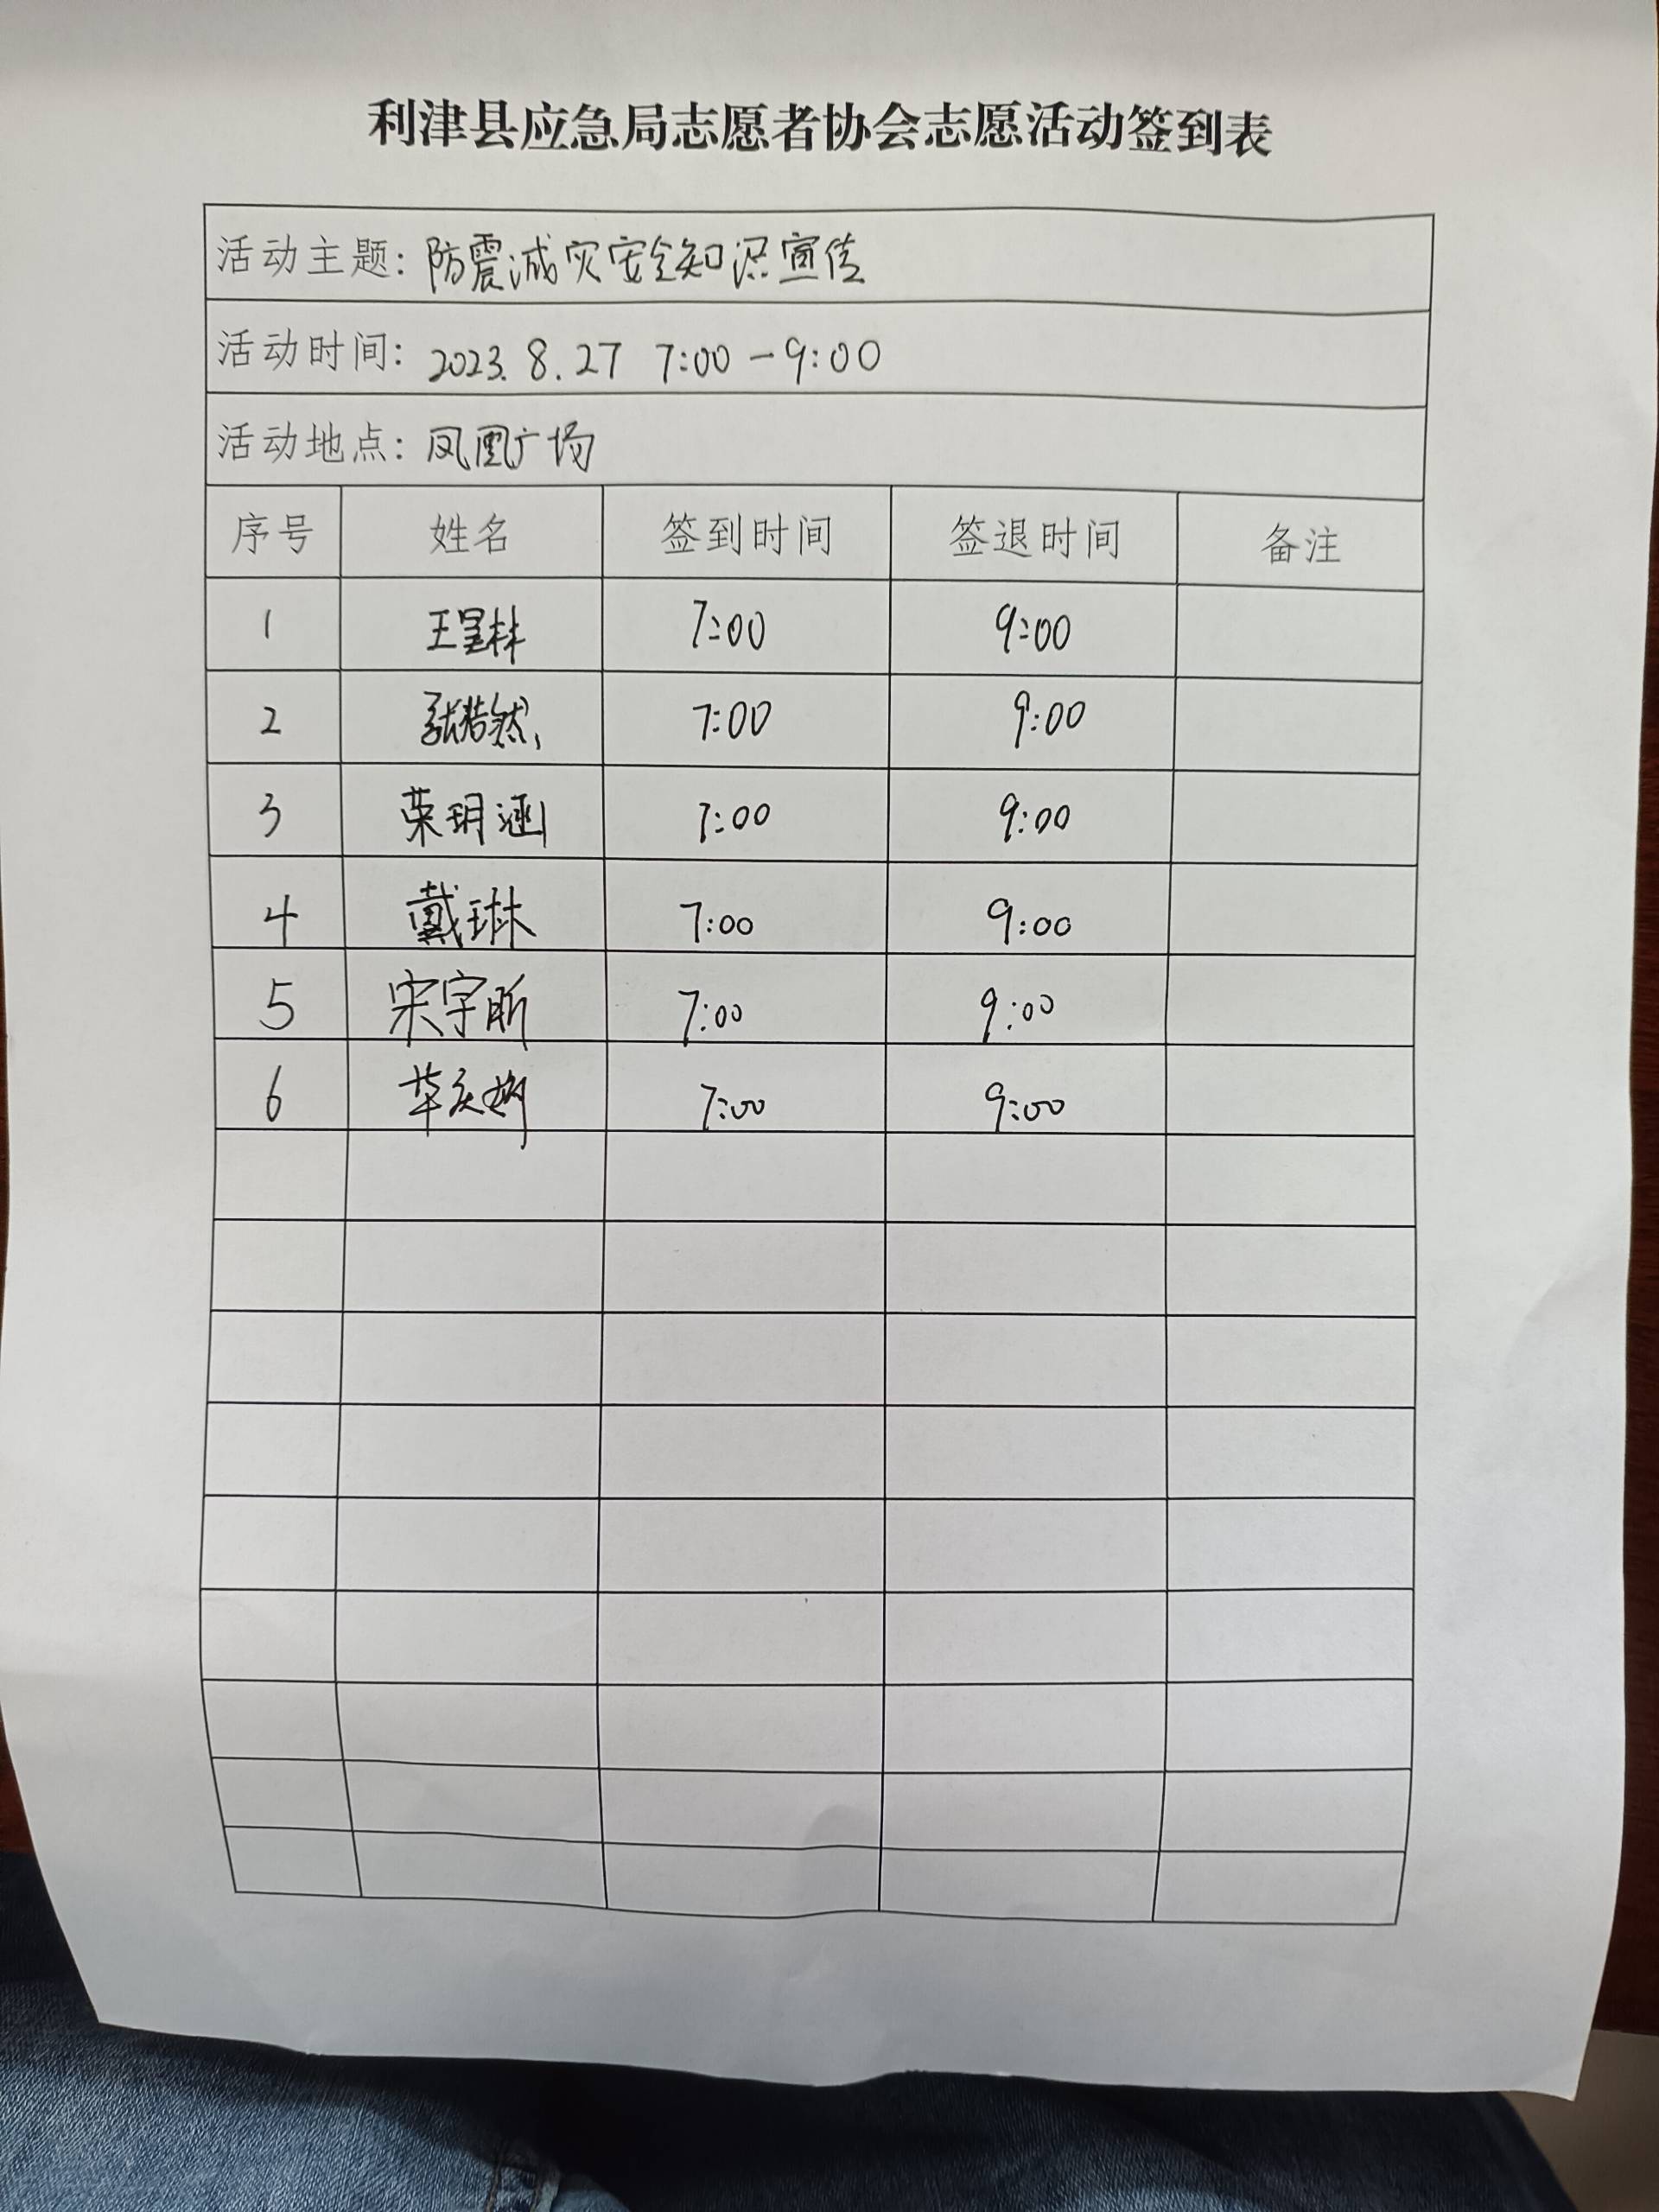 利津县应急局志愿者协会志愿活动签到表
活动主题：防震减灾安全知识宣传
活动时间：2023.8.27 7:00-9:00
活动地点：凤凰广场
序号 姓名 签到时间 签退时间 备注
1 7:00 9:00
2 张浩然 7:00 9:00
3 荣玥涵 7:00 9:00
4 戴琳 7:00 9:00
5 宋宇昕 7:00 9:00
6 7:00 9:00